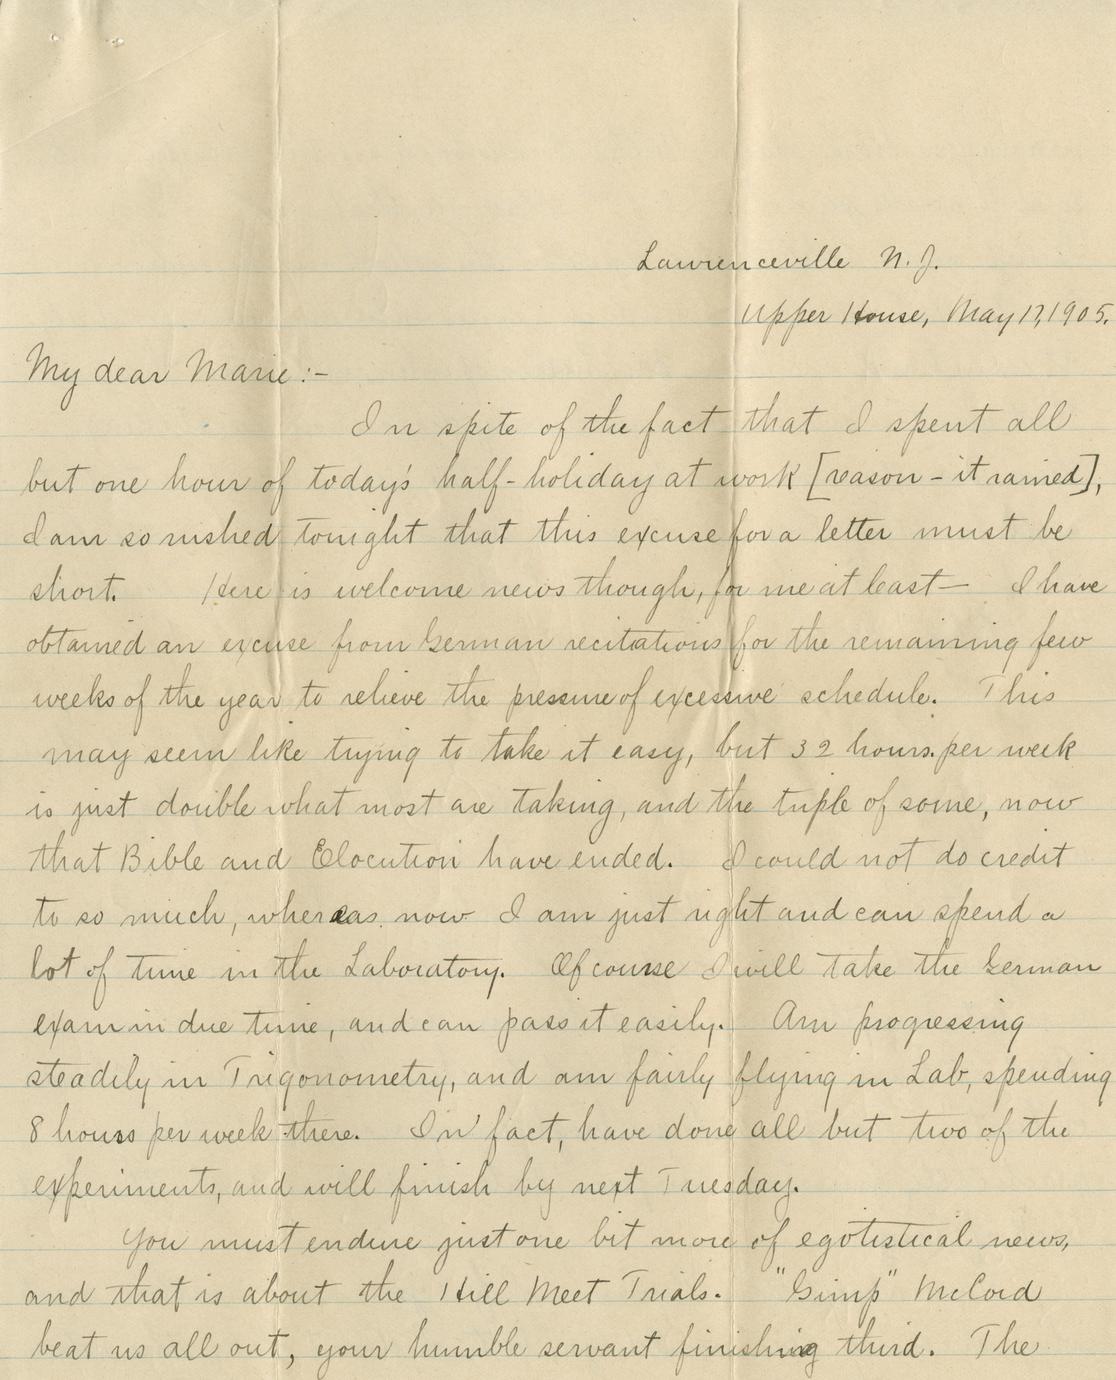 Lawrenceville N. J.
Upper House, May 17, 1905.
My dear Marie:-
In spite of the fact that I spent all
but one hour of today's half-holiday at work [reason - it rained],
I am so rushed tonight that this excuse for a letter must be
short. Here is welcome news though, for me at least— I have
obtained an excuse from German recitations for the remaining few
weeks of the year to relieve the pressure of excessive schedule. This
may seem like trying to take it easy, but 32 hours per week
is just double what most are taking, and the triple of some, now
that Bible and Elocution have ended. I could not do credit
to so much, whereas now I am just right and can spend a
lot of time in the Laboratory. Of course I will take the German
exam in due time, and can pass it easily. Am progressing
steadily in Trigonometry, and am fairly flying in Lab, spending
8 hours per week there. In fact, have done all but two of the
experiments, and will finish by next Tuesday.
You must endure just one bit more of egotistical news,
and that is about the Hill Meet Trials. "Gimp" McCord
beat us all out, your humble servant finishing third. The